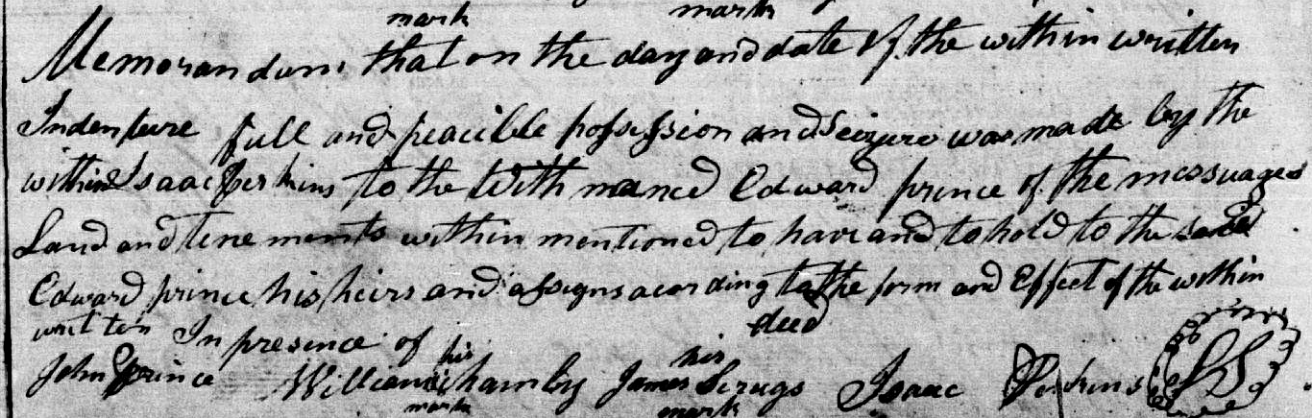 mark mark
Memorandum that on the day and date of the within written
Indenture full and peacible possession and Seizure was made by the
within Isaac Perkins to the With maned Edward prince of the messuages
Land and tenements within mentioned to have and to hold to the said
Edward prince his heirs and assigns acording to the form and Effect of the within
written deed
In presence of
his his
John Prince William Hamby James Scrugs Isaac Perkins LS
mark mark